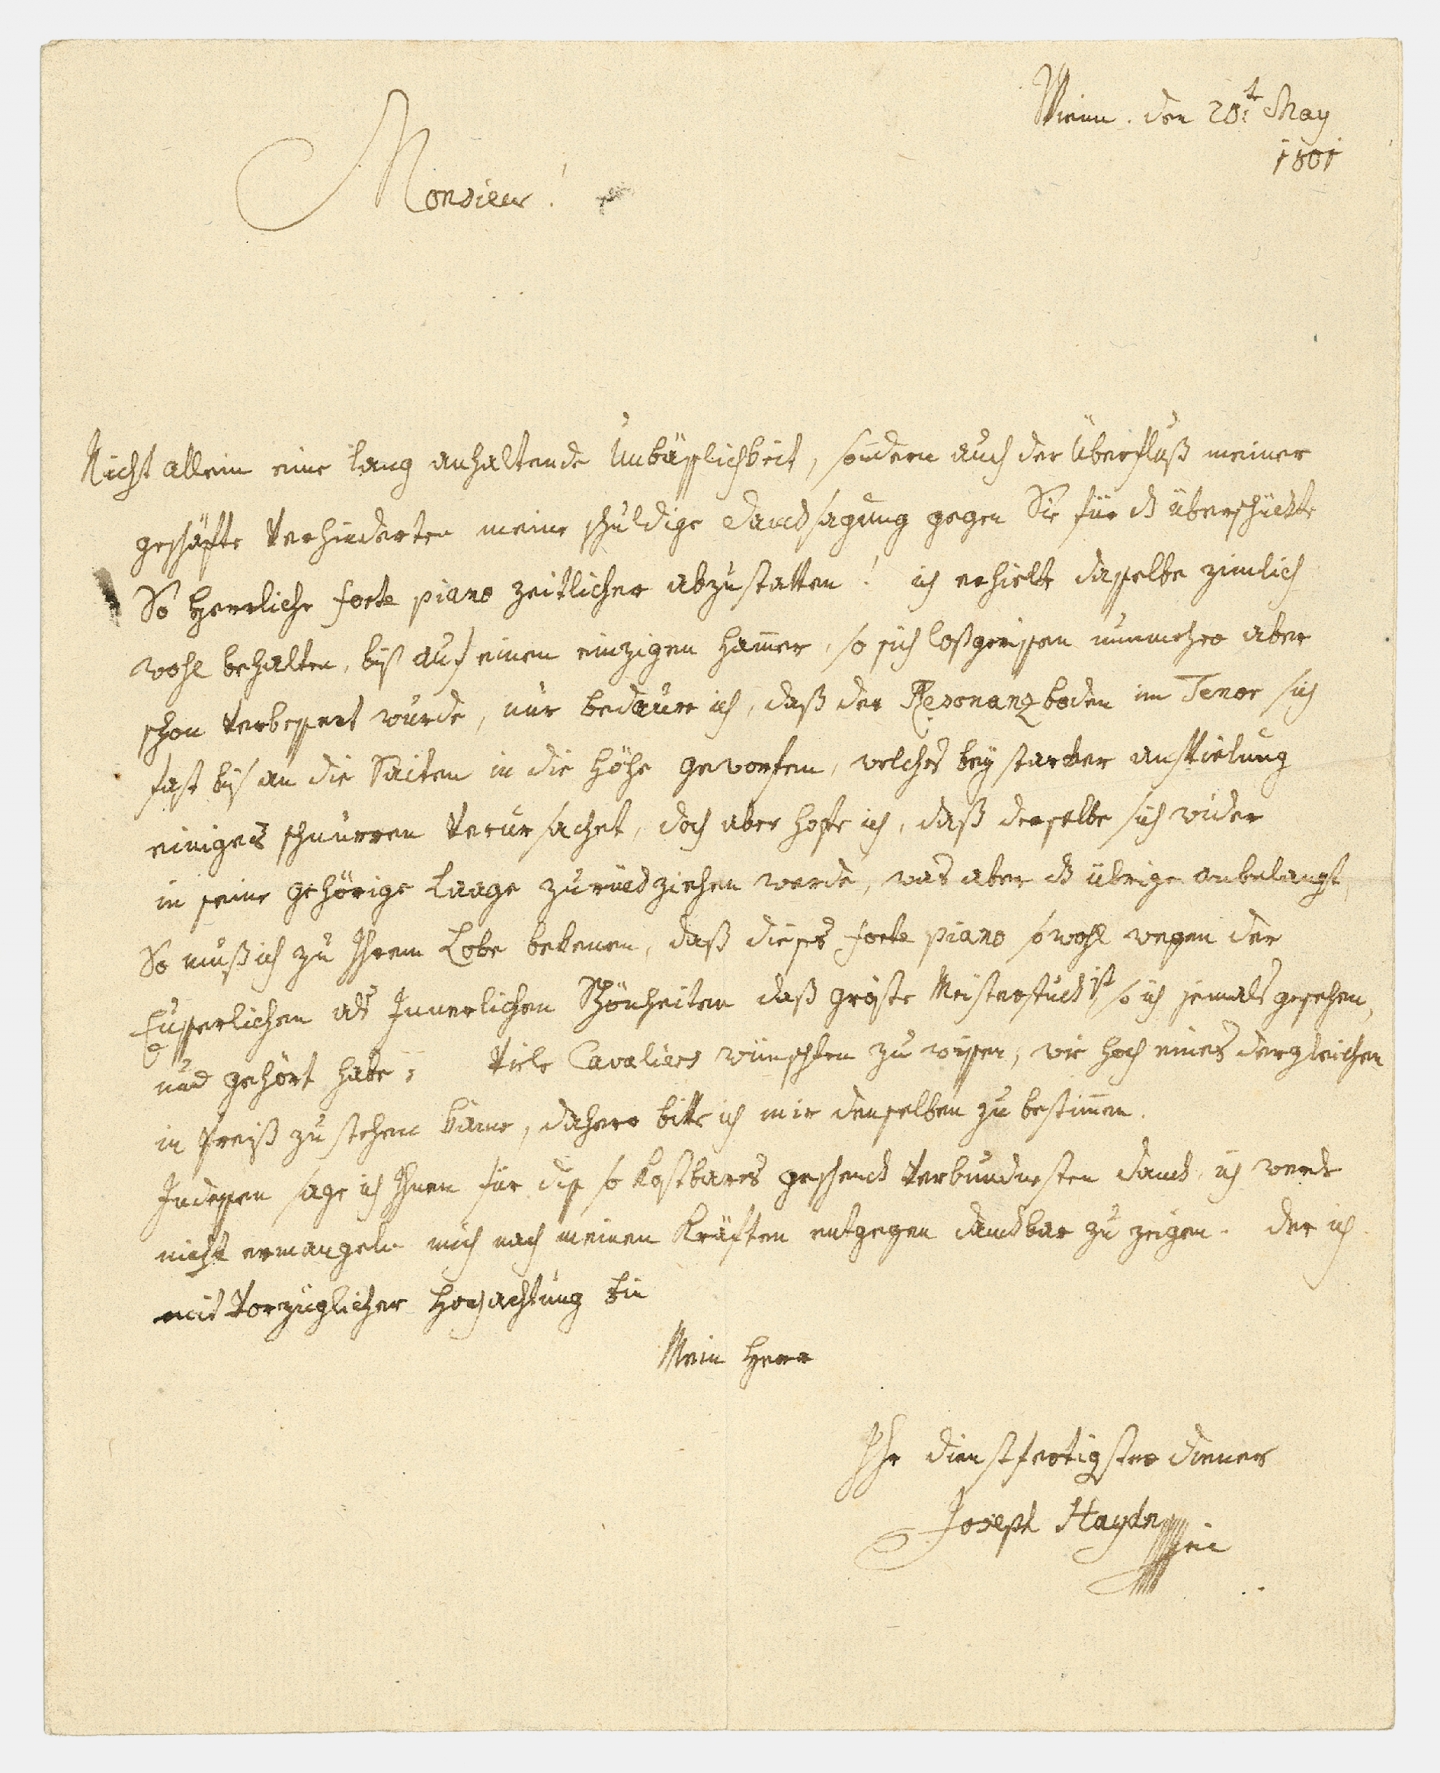 Wienn. den 20t May
1801
Monsieur!
Nicht allein eine lang anhaltende Unbäßlichkeit, sondern auch der Überfluß meiner
geschäfte verhinderten meine schuldige Dancksagung gegen Sie für überschückte
So Herrliche forte piano zeitlicher abzustatten! ich erhielte dasselbe zimlich
wohl behalten, biß auf einen einzigen Hamer, so sich loßgerissen nunmehro aber
schon verbessert wurde, nur bedaure ich, daß der Resonanzboden im Tenor sich
fast biß an die Saiten in die Höhe geworfen, welches bey starcker anspielung
einiges schnurren verursachet, doch aber hoffe ich, daß derselbe sich wider
in seine gehörige Laage zurückziehen werde, was aber übrige anbelangt,
So muß ich zu Ihrem Lobe bekenen, daß dieses forte piano sowohl wegen der
Eusserlichen als Innerlichen Schönheiten daß gröste Meisterstück ist so ich jemals gesehen,
und gehört habe; viele Cavaliers wünschten zu wissen, wie hoch eines dergleichen
in Preiß zu stehen käme, dahero bitte ich mir denselben zu bestimen.
Indessen sage ich Ihnen für diß so kostbares geschenck verbundnesten danck, ich werde
nicht ermangeln mich nach meinen Kräften entgegen danckbar zu zeigen. Der ich
mit vorzüglicher Hochachtung bin
Mein Herr
Ihr dienstfertigster diener
Joseph Haydn